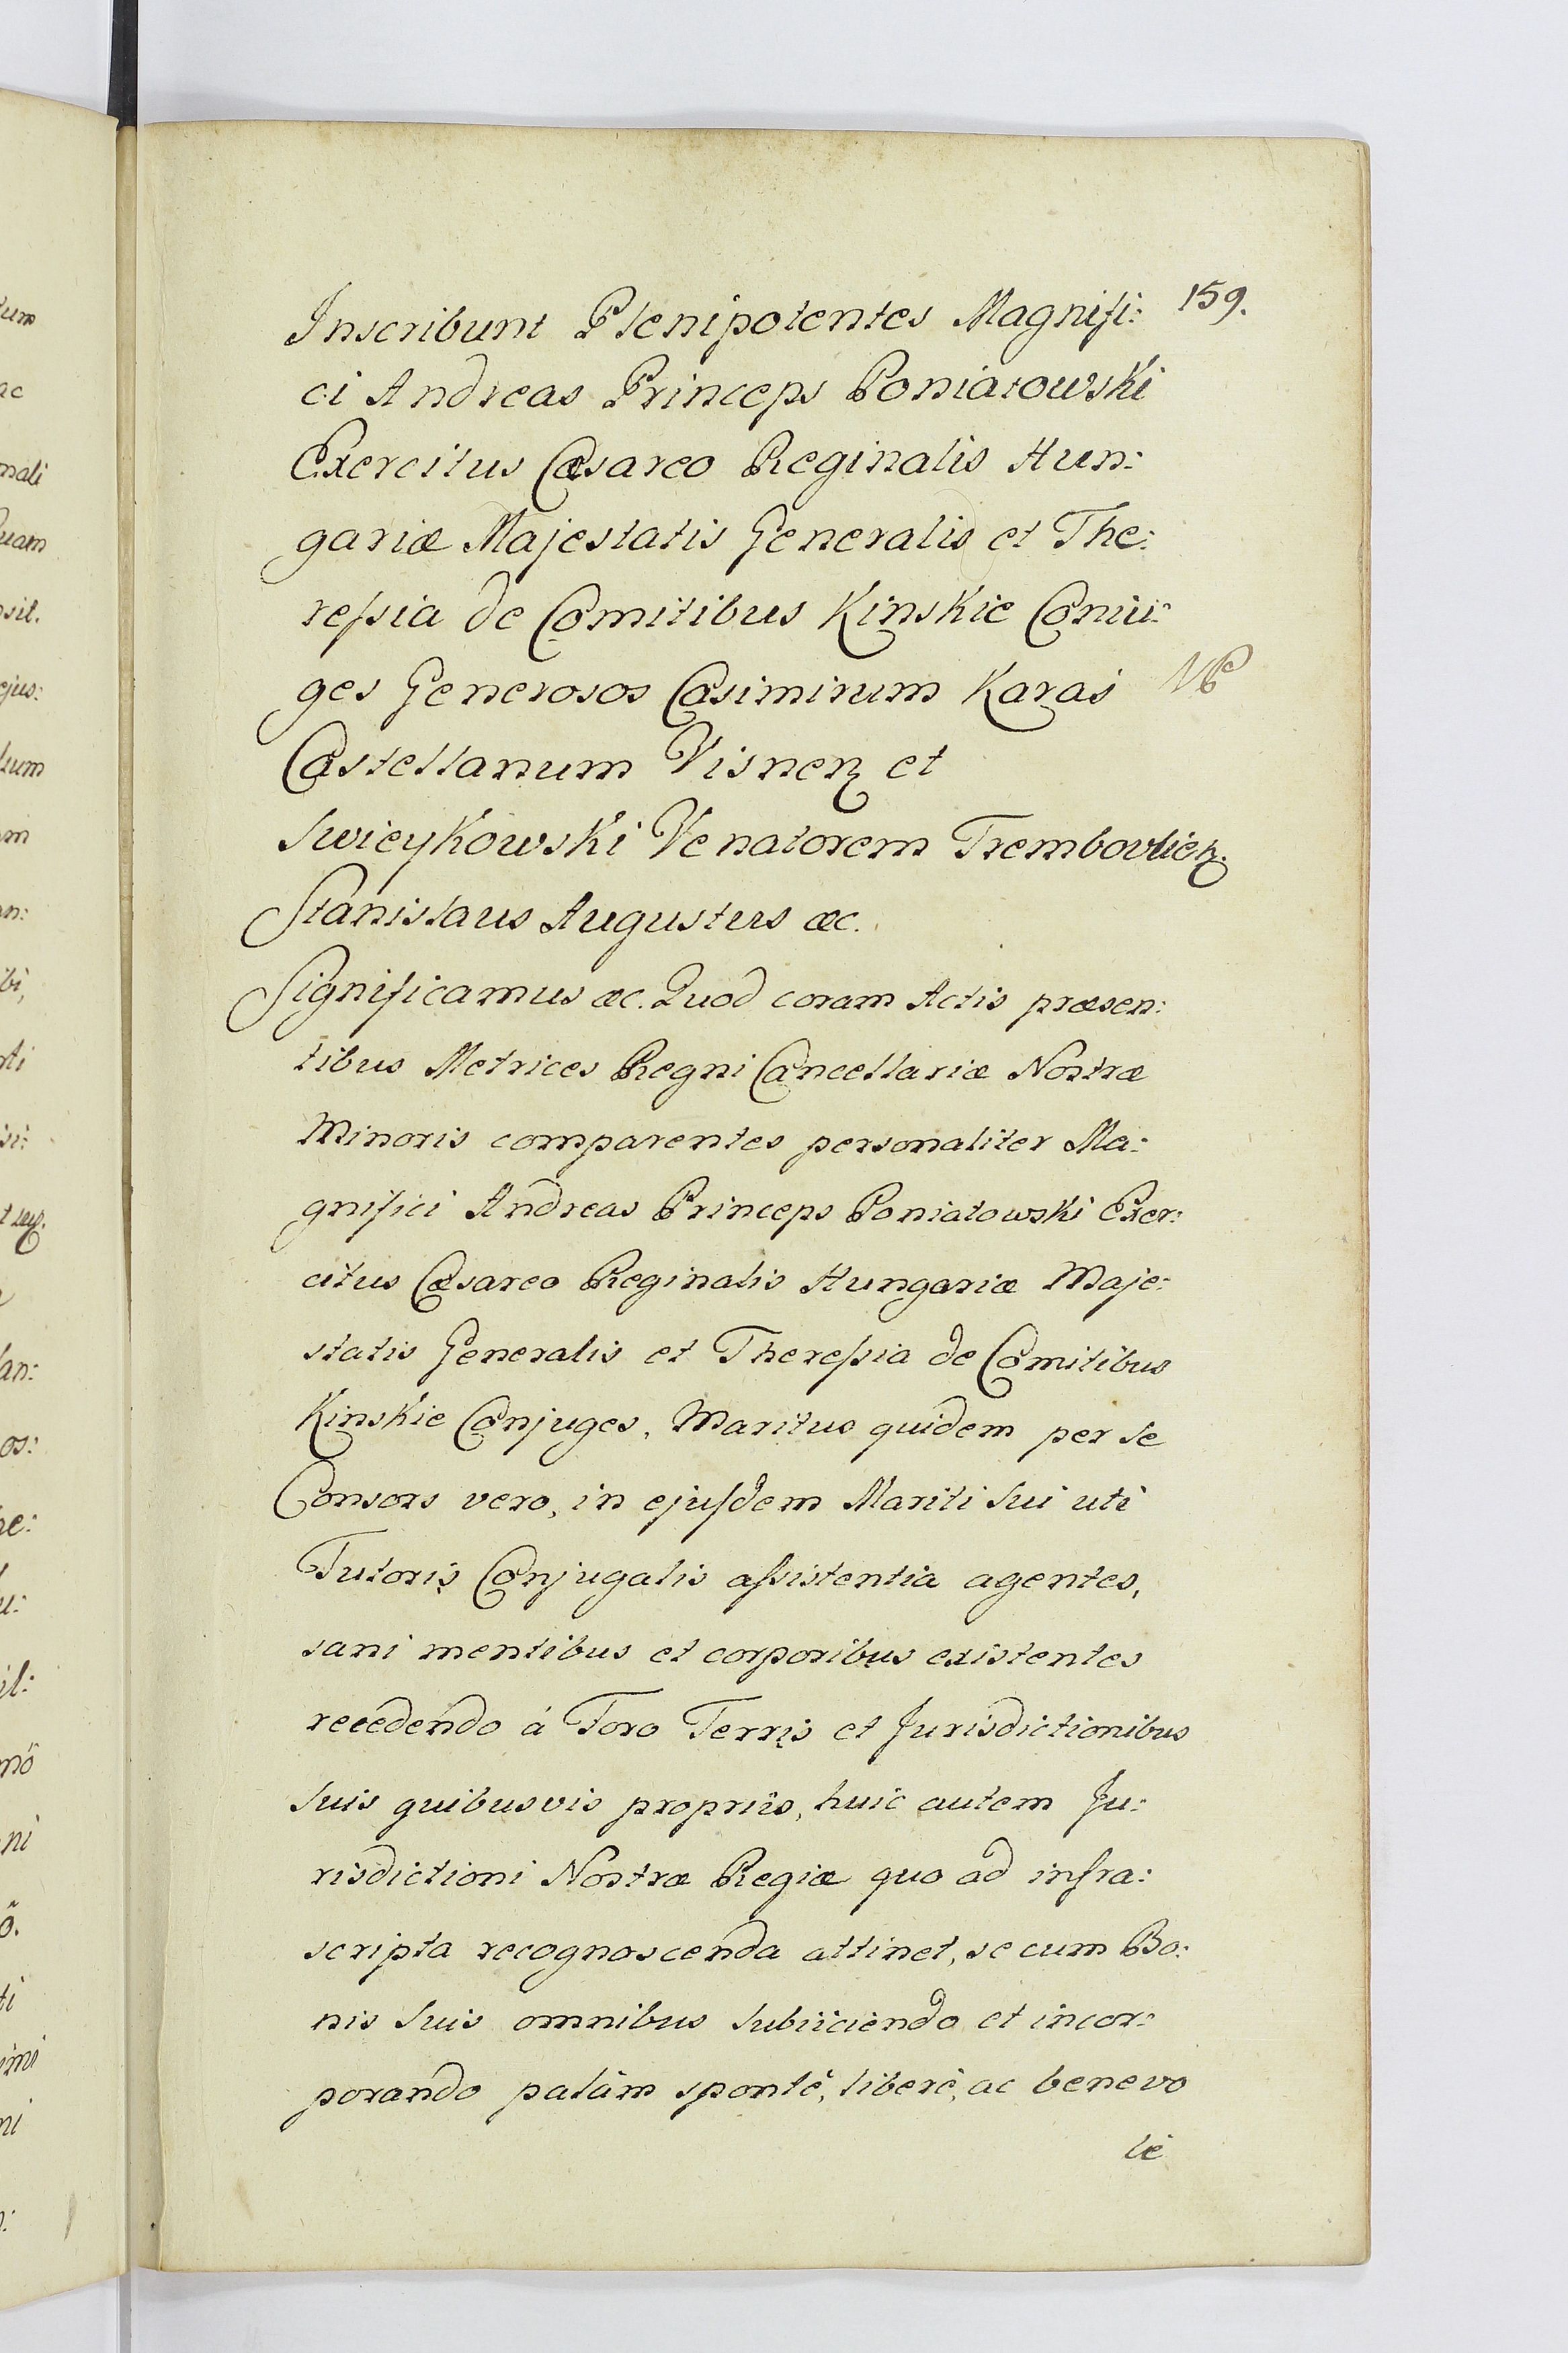 159.
Inscribunt Plenipotentes Magnifi:
ci Andreas Princeps Poniatowski
Exercitus Cæsareo Reginalis Hun:
gariæ Majestatis Generalis et The:
ressia de Comitibus Kinskie Coniu:
ges Generosos Casimirum Karaś
Castellanum Visnen et
Swieykowski Venatorem Trembovlien.
Stanislaus Augustus &c.
Significamus &c. Quod coram Actis præsen:
tibus Metrices Regni Cancellariæ Nostræ
Minoris comparentes personaliter Ma:
gnifici Andreas Princeps Poniatowski Exer:
citus Cæsareo Reginalis Hungariæ Maje:
statis Generalis et Theressia de Comitibus
Kinskie Conjuges, Maritus quidem per se
Consors vero, in ejusdem Mariti sui uti
Tutoris Conjugalis assistentia agentes,
sani mentibus et corporibus existentes
recedendo á Foro Terris et Jurisdictionibus
suis quibusvis propriis, huic autem Ju:
risdictioni Nostræ Regiæ quo ad infra:
scripta recognoscenda attinet, se cum Bo:
nis suis omnibus subiiciendo et incor:
porando palàm spontè, liberè, ac benevo
lè